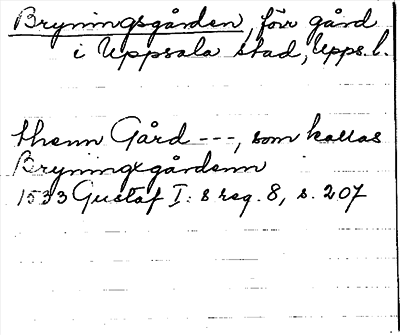 Bryningsgården, förr gård
i Uppsala stad, Upps. l.
thenn Gård ---, som kallas
Bryningxgårdenn
1533 Gustaf I:s reg. 8, s. 207